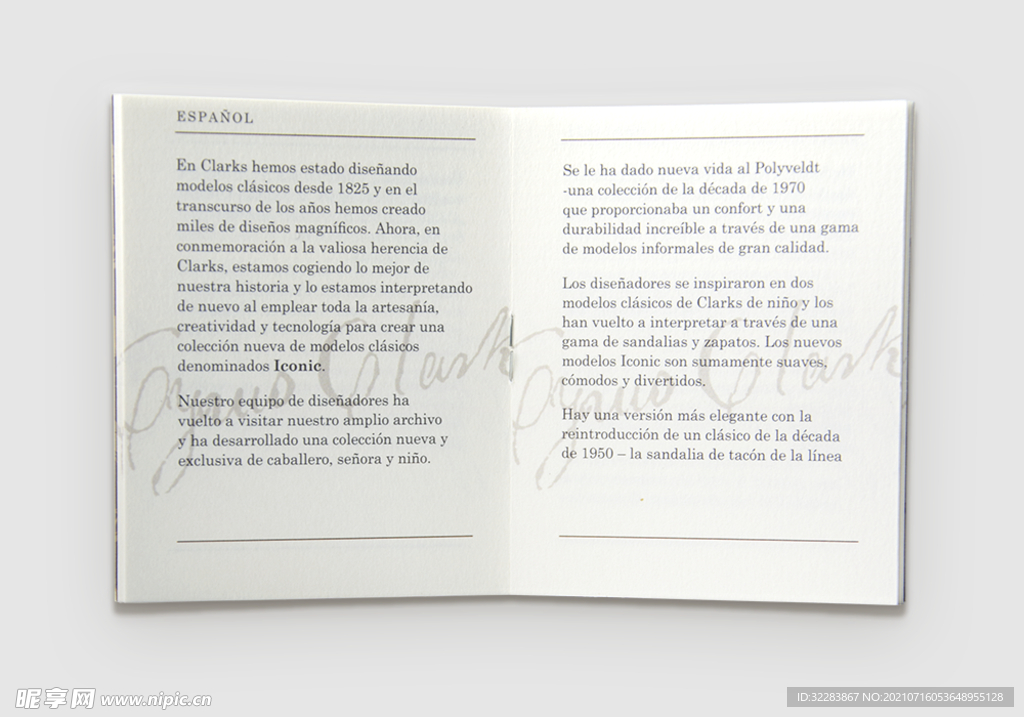 ESPAÑOL
En Clarks hemos estado diseñando
modelos clásicos desde 1825 y en el
transcurso de los años hemos creado
miles de diseños magníficos. Ahora, en
conmemoración a la valiosa herencia de
Clarks, estamos cogiendo lo mejor de
nuestra historia y lo estamos interpretando
de nuevo al emplear toda la artesanía,
creatividad y tecnología para crear una
colección nueva de modelos clásicos
denominados Iconic.
Nuestro equipo de diseñadores ha
vuelto a visitar nuestro amplio archivo
y ha desarrollado una colección nueva y
exclusiva de caballero, señora y niño.
Se le ha dado nueva vida al Polyveldt
-una colección de la década de 1970
que proporcionaba un confort y una
durabilidad increíble a través de una gama
de modelos informales de gran calidad.
Los diseñadores se inspiraron en dos
modelos clásicos de Clarks de niño y los
han vuelto a interpretar a través de una
gama de sandalias y zapatos. Los nuevos
modelos Iconic son sumamente suaves,
cómodos y divertidos.
Hay una versión más elegante con la
reintroducción de un clásico de la década
de 1950 – la sandalia de tacón de la línea
Cyrus Clark
Cyrus Clark
昵享网 www.nipic.cn
ID:32283867 NO:20210716053648955128